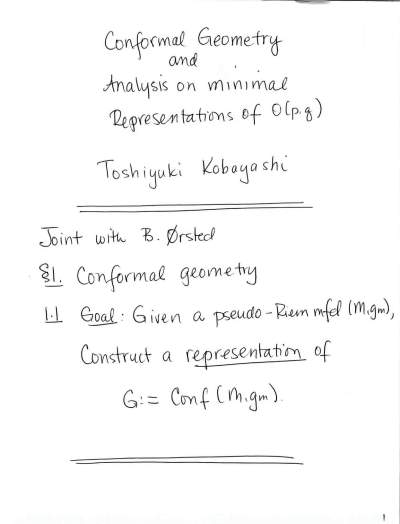 Conformal Geometry
and
Analysis on minimal
Representations of O(p,q)
Toshiyuki Kobayashi
Joint with B. Ørsted
§1. Conformal geometry
1.1 Goal: Given a pseudo-Riem mfd (M,gM),
Construct a representation of
G:= Conf (M,gM).
1